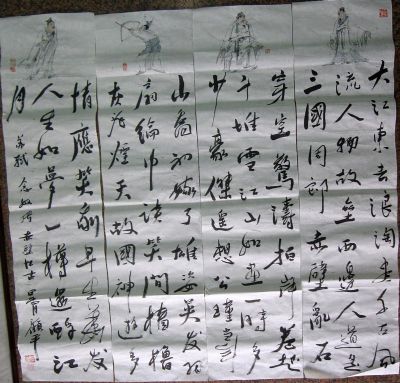 大江東去浪淘盡千古風
流人物故壘西邊人道是
三國周郎赤壁亂石
穿空驚濤拍岸卷起
千堆雪江山如畫一時多
少豪傑遙想公瑾當年
小喬初嫁了雄姿英發羽
扇綸巾談笑間檣櫓
灰飛煙滅故國神遊多
情應笑我早生華髮
人生如夢一樽還酹江
月
蘇軾念奴嬌赤壁懷古